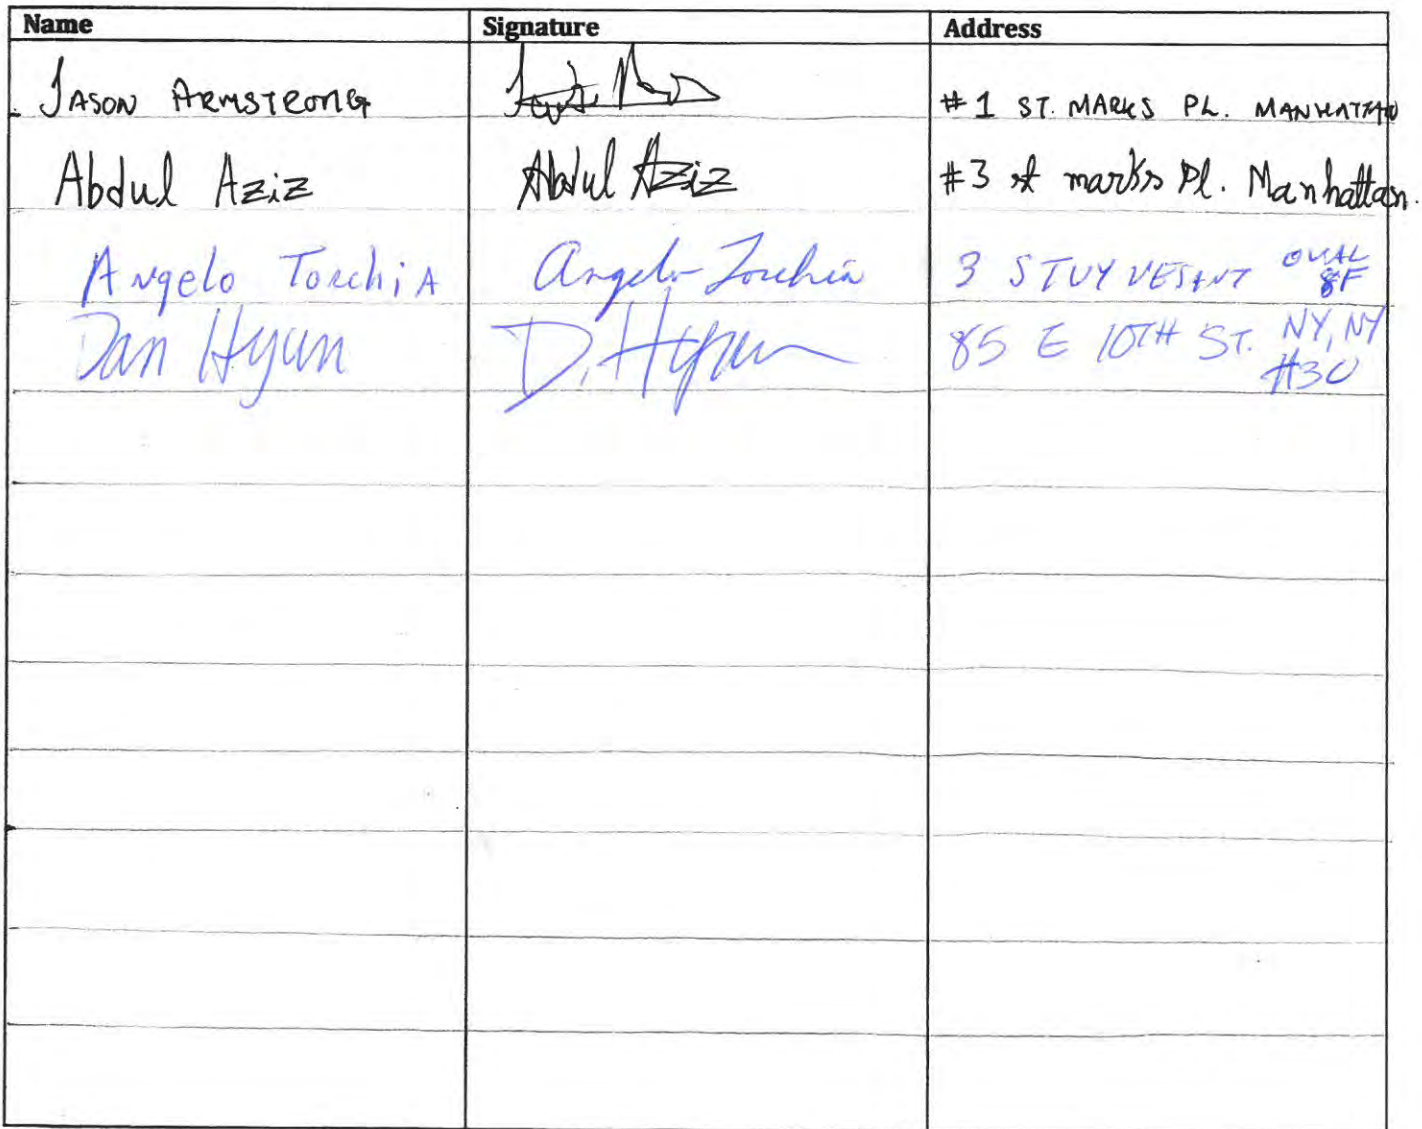 Name Signature Address
JASON ARMSTRONG #1 ST. MARKS PL. MANHATTAN
Abdul Aziz Abdul Aziz #3 st marks Pl. Manhattan.
Angelo TorchiA Angelo Torchia 3 STUYVESANT OVAL 8F
Dan Hyun D. Hyun 85 E 10TH ST. NY, NY
#3C